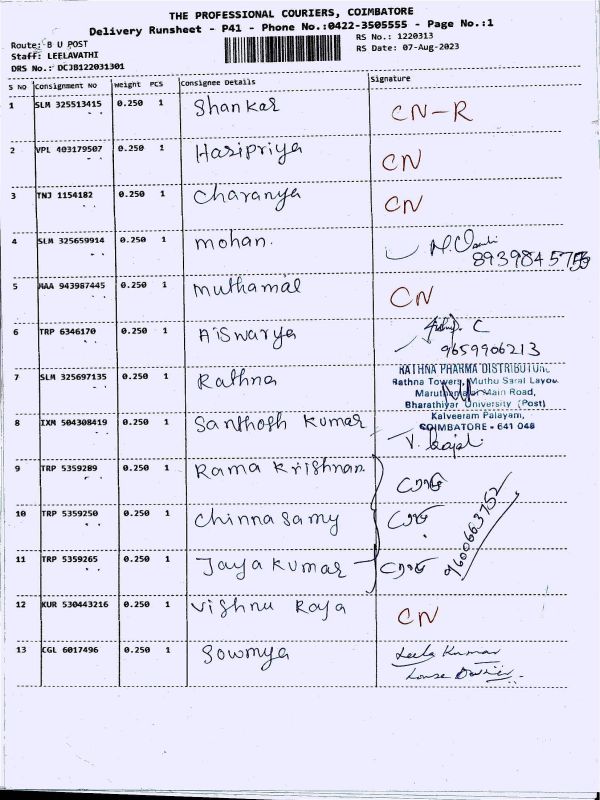 THE PROFESSIONAL COURIERS, COIMBATORE
Delivery Runsheet - P41 - Phone No.:0422-3505555 - Page No.:1
Route: B U POST RS No.: 1220313
Staff: LEELAVATHI RS Date: 07-Aug-2023
DRS No.: DCJB122031301
S No Consignment No Weight PCS Consignee Details Signature
1 SLM 325513415 0.250 1 Shankar CN-R
2 VPL 403179507 0.250 1 Haripriya CN
3 TNJ 1154182 0.250 1 Charanya CN
4 SLM 325659914 0.250 1 mohan.
5 MAA 943987445 0.250 1 muthamal CN
6 TRP 6346170 0.250 1 Aiswarya C
9659906213
7 SLM 325697135 0.250 1 Rathna
RATHNA PHARMA DISTRIBUTORS
Rathna Towers, Muthu Saral Layou
Main Road,
Bharathiyar University (Post)
Kalveeram Palayam,
COIMBATORE - 641 046
8 IXM 504308419 0.250 1 Santhosh kumar
9 TRP 5359289 0.250 1 Rama krishnan
10 TRP 5359250 0.250 1 chinna samy
9600663752
11 TRP 5359265 0.250 1 Jaya kumar
12 KUR 530443216 0.250 1 Vishnu Raja CN
13 CGL 6017496 0.250 1 Sowmya Leela Kumar